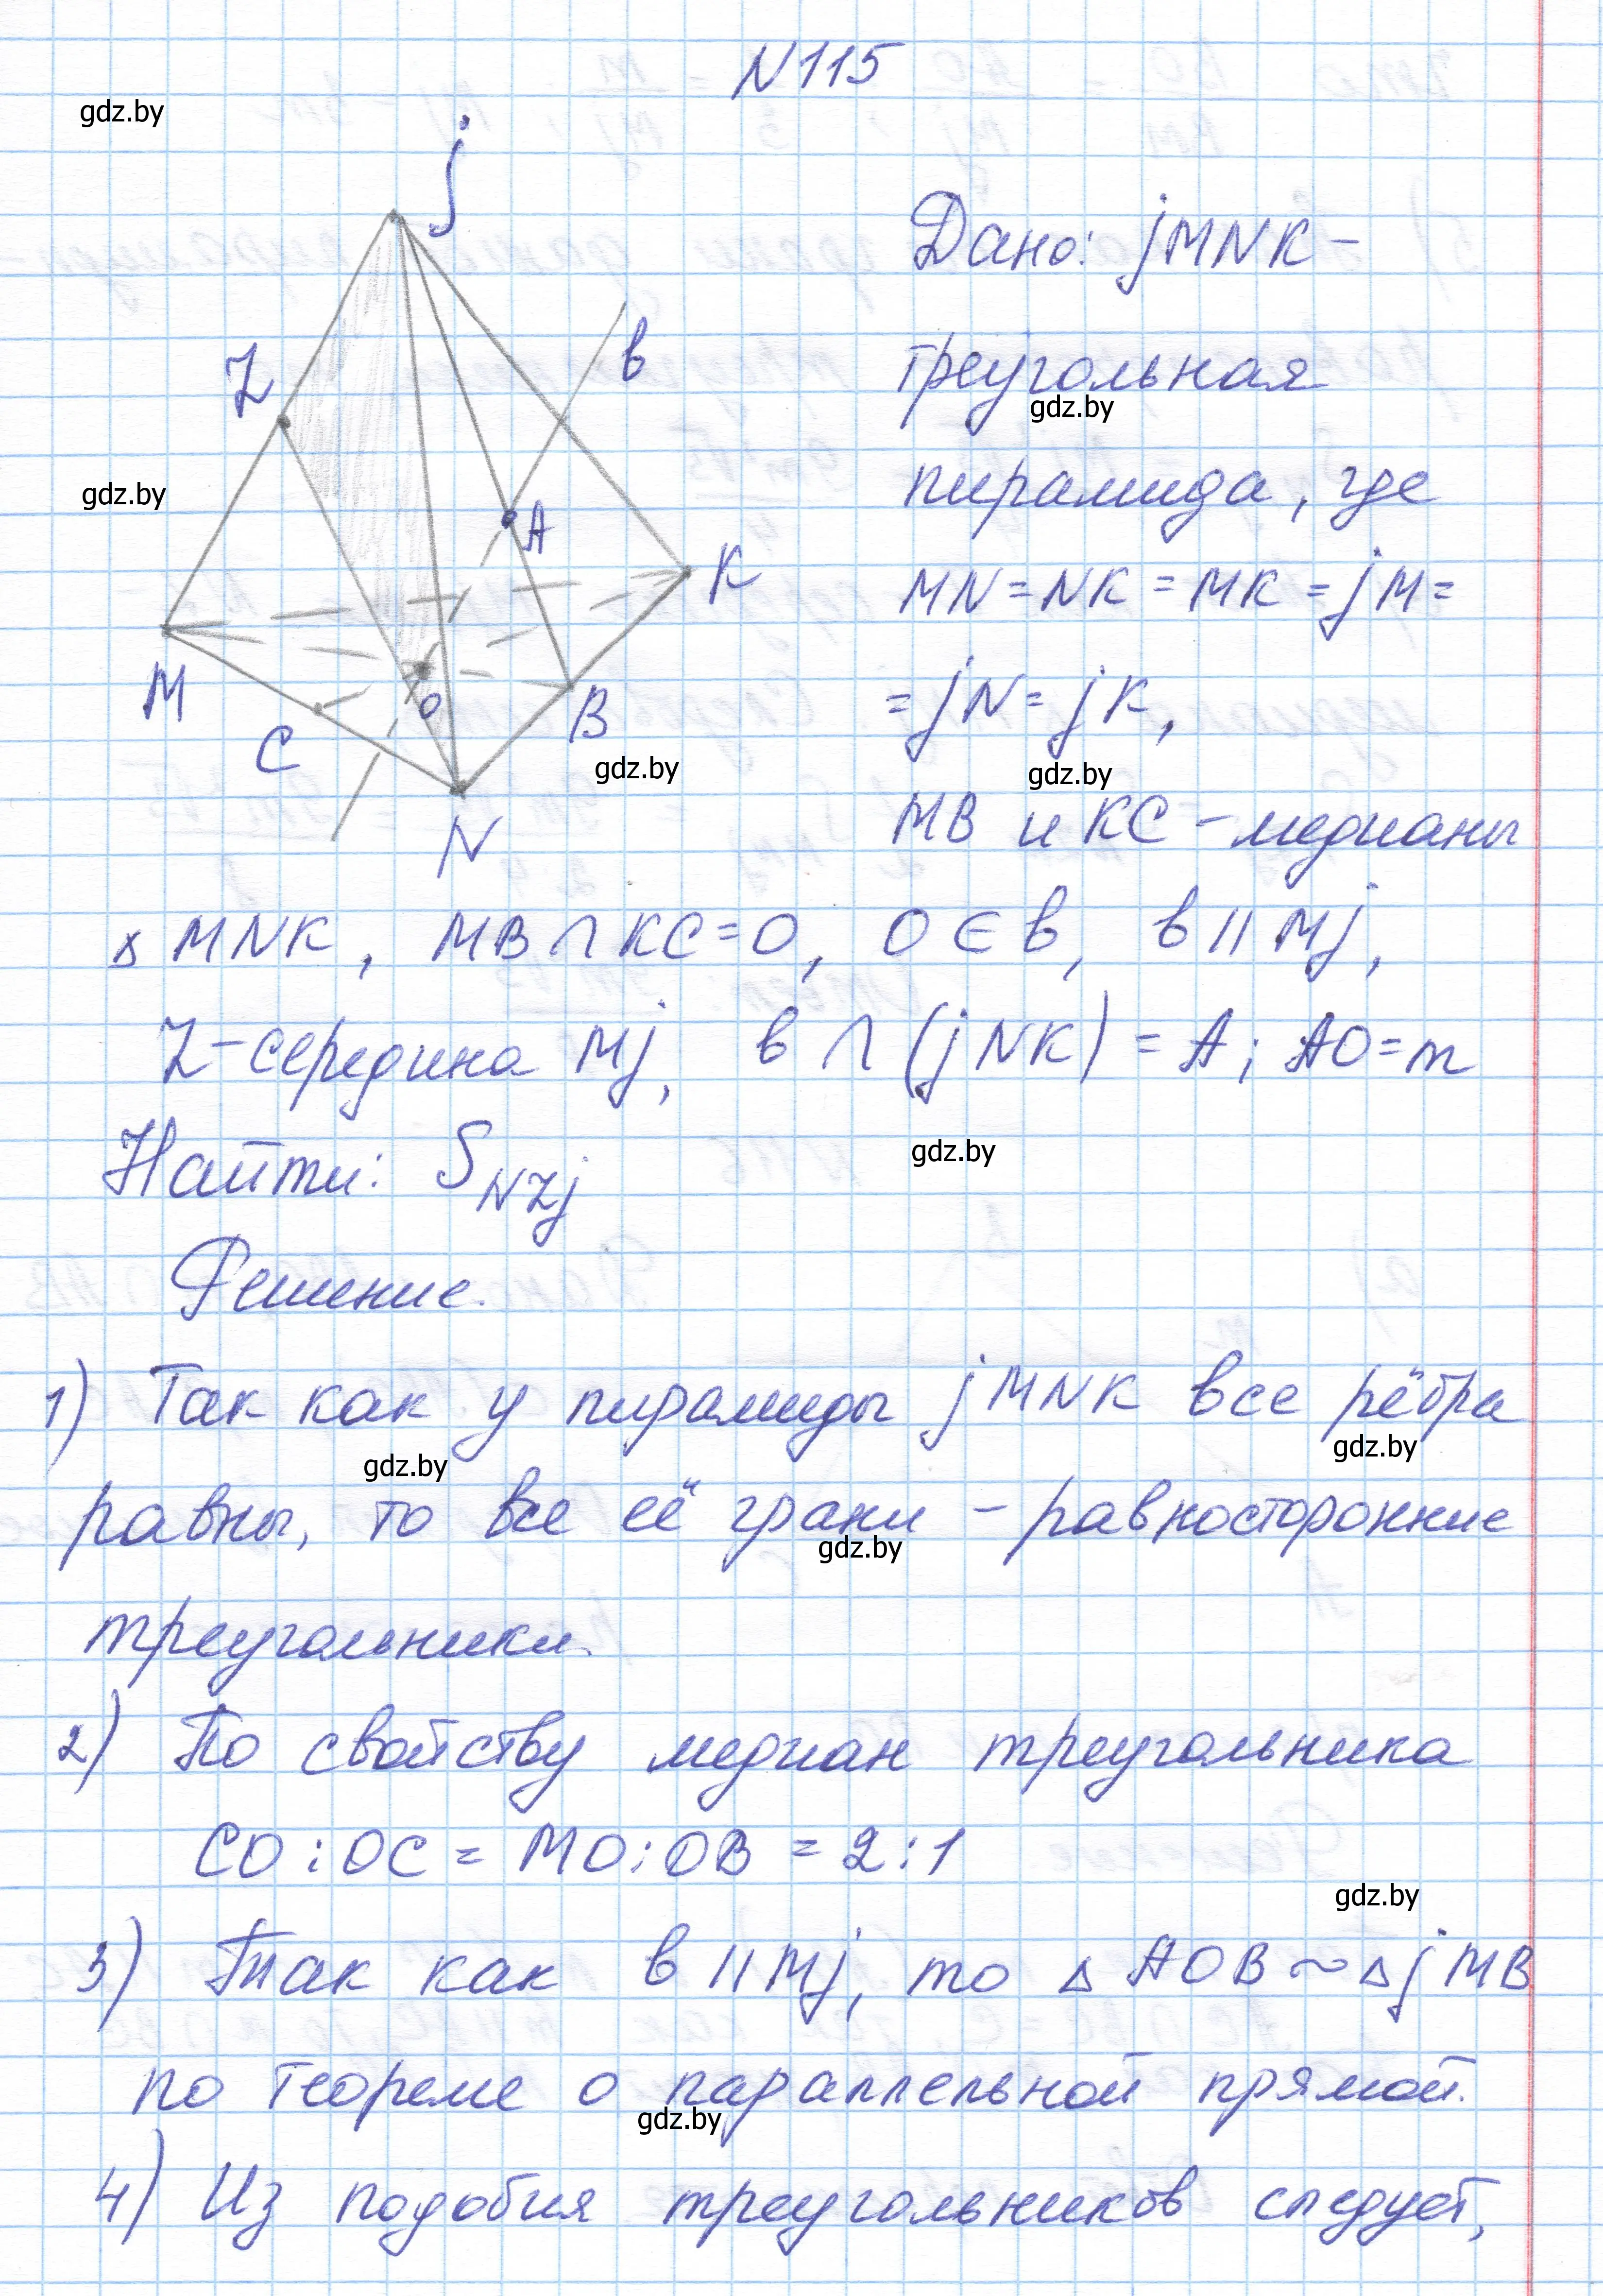 N115
gdz.by
j
Дано: jMNK –
Z
в
треугольная
gdz.by
gdz.by
пирамида, где
A
K
MN = NK = MK = jM =
M
O
= jN = jK,
C
B
gdz.by
gdz.by
N
MB и KC – медианы
Δ MNK, MB ∩ KC = O, O ∈ в, в || Mj,
Z – середина Mj, в ∩ (jNK) = A; AO = m
Найти: S NZj
gdz.by
Решение.
1) Так как у пирамиды jMNK все рёбра
gdz.by
gdz.by
равны, то все её грани – равносторонние
gdz.by
треугольники.
2) По свойству медиан треугольника
CO : OC = MO : OB = 2 : 1
gdz.by
3) Так как в || Mj, то Δ AOB ~ Δ jMB
по теореме о параллельной прямой.
gdz.by
4) Из подобия треугольников следует,